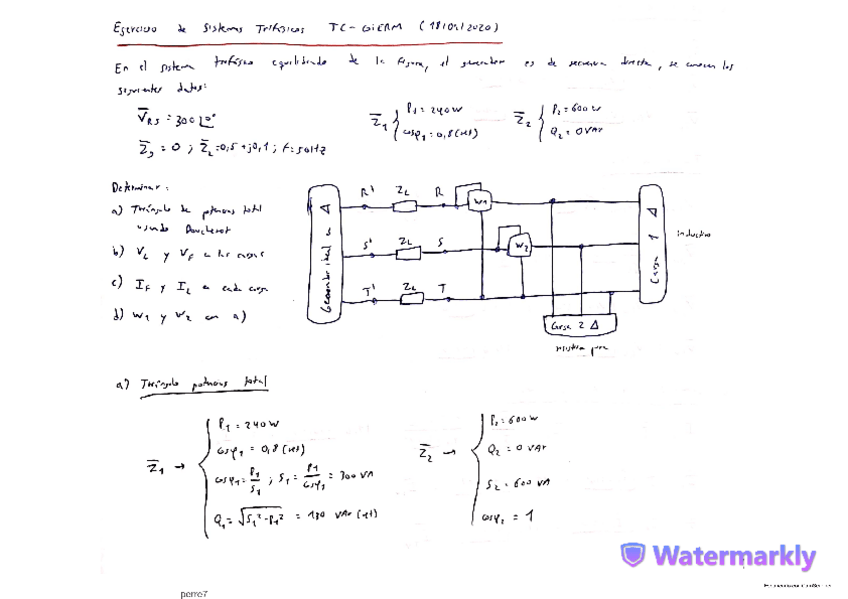 Ejercicio de Sistemas Trifásicos TC-GIERM (18/05/2020)
En el sistema trifásico equilibrado de la figura, el generador es de secuencia directa, se conocen los
siguientes datos:
V̅RS = 300∠0°
Z̅g = 0 ; Z̅L = 0,5 + j0,1 ; f = 50Hz
Z̅1 { P1 = 240 W
cosφ1 = 0,8 (ret)
Z̅2 { P2 = 600 W
Q2 = 0 VAr
Determinar:
a) Triángulo de potencias total
usando Boucherot
b) VL y VF a las cargas
c) IF y IL a cada carga
d) W1 y W2 en a)
Generador ideal en Δ
R' ZL R W1
S' ZL S W2
T' ZL T
Carga 1 Δ
inductiva
Carga 2 Δ
resistiva pura
a) Triángulo potencias total
Z̅1 → { P1 = 240 W
cosφ1 = 0,8 (ret)
cosφ1 = P1/S1 ; S1 = P1/cosφ1 = 300 VA
Q1 = √(S1² - P1²) = 180 VAr (ret)
Z̅2 → { P2 = 600 W
Q2 = 0 VAr
S2 = 600 VA
cosφ2 = 1
Watermarkly
perre7